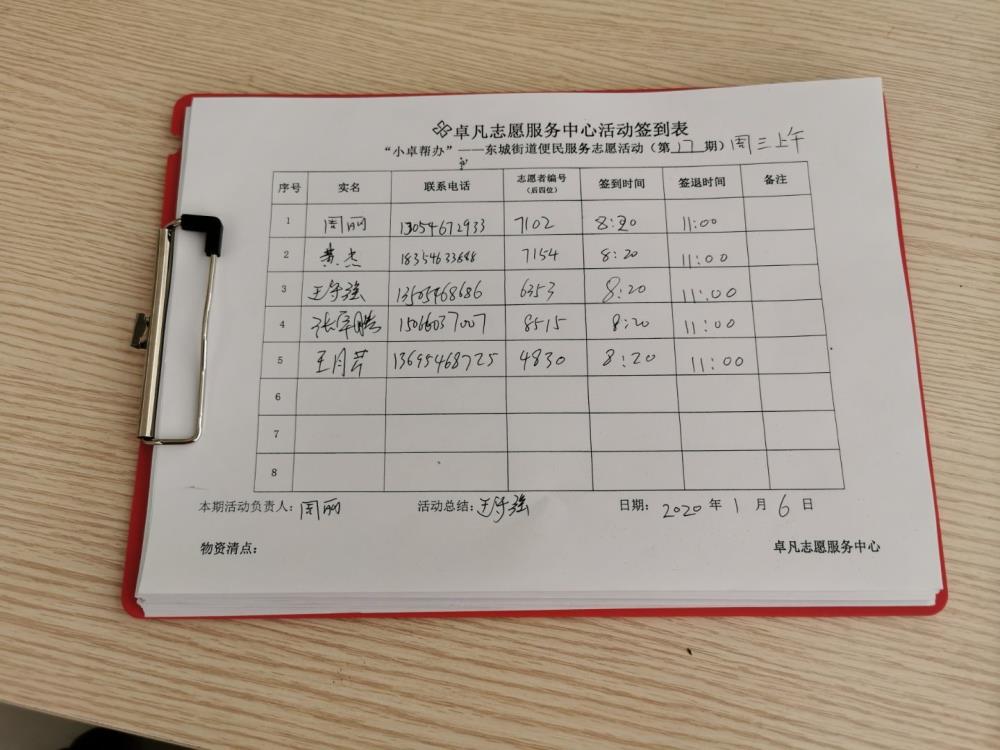 卓凡志愿服务中心活动签到表
“小卓帮办”——东城街道便民服务志愿活动（第17期）周三上午
序号 实名 联系电话 志愿者编号（后四位） 签到时间 签退时间 备注
1 周丽 13054672933 7102 8:20 11:00
2 黄杰 18354633688 7154 8:20 11:00
3 王守强 13505468686 6353 8:20 11:00
4 张军鹏 15066037007 8515 8:20 11:00
5 王月芹 13695468725 4830 8:20 11:00
6
7
8
本期活动负责人：周丽 活动总结：王守强 日期：2020年1月6日
物资清点： 卓凡志愿服务中心